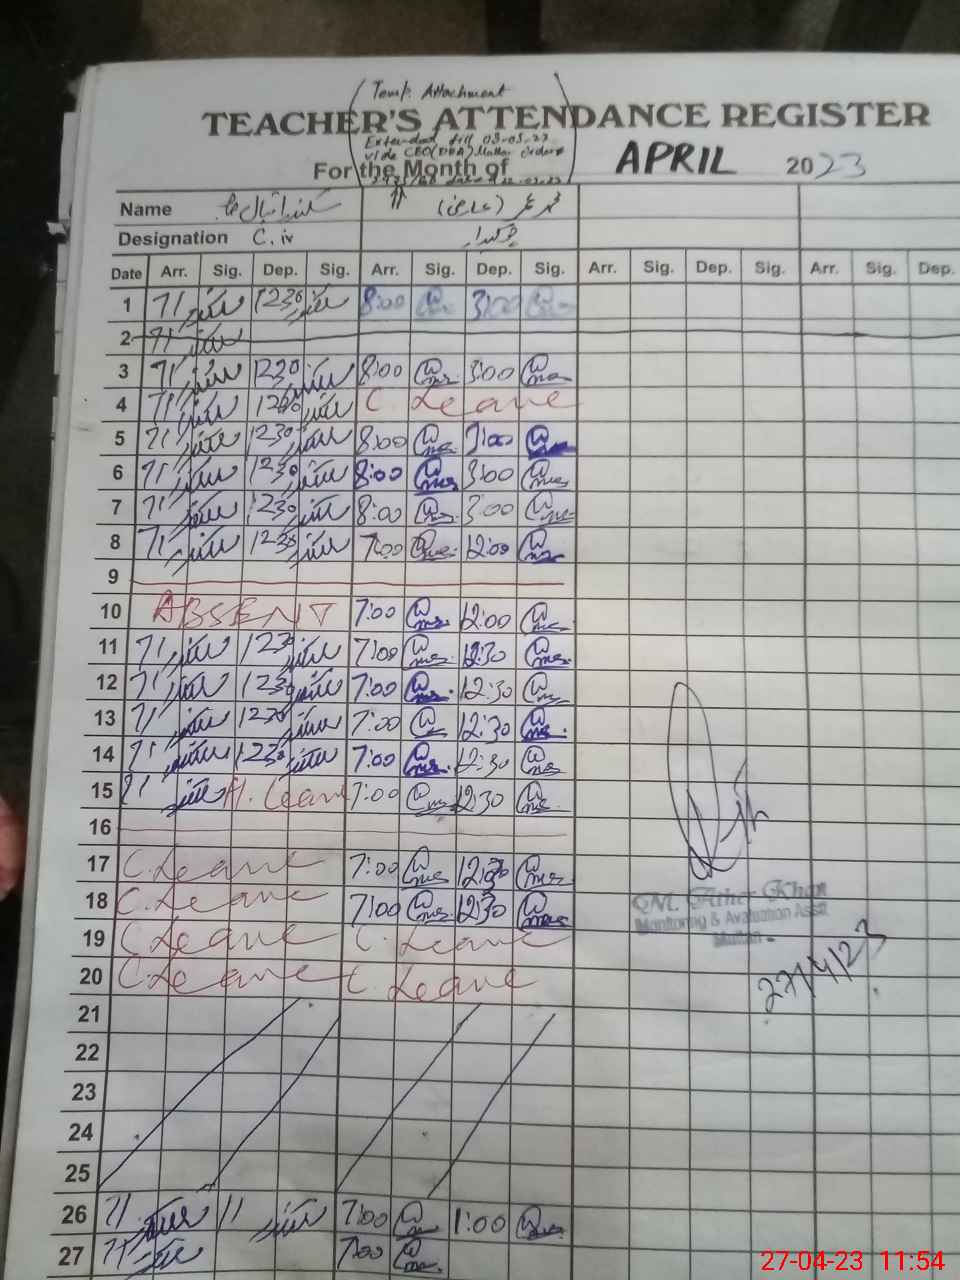 Temp. Attachment
TEACHER'S ATTENDANCE REGISTER
Extended till 03-05-23
vide CEO (DEA) Multan order
For the Month of APRIL 2023
Name
Designation C. iv چوکیدار
Date Arr. Sig. Dep. Sig. Arr. Sig. Dep. Sig. Arr. Sig. Dep. Sig. Arr. Sig. Dep.
1 71 1230 8:00 3:00
2 71
3 71 1230 8:00 3:00
4 71 1230 C. Leave
5 71 1230 8:00 3:00
6 71 1230 8:00 3:00
7 71 1230 8:00 3:00
8 71 1230 7:00 12:00
9
10 ABSENT 7:00 12:00
11 71 1230 7:00 12:30
12 71 1230 7:00 12:30
13 71 1230 7:00 12:30
14 71 1230 7:00 12:30
15 71 H. Leave 7:00 12:30
16
17 C. Leave 7:00 12:30
18 C. Leave 7:00 12:30
19 C. Leave C. Leave
20 C. Leave C. Leave
21
22
23
24
25
26 71 11 7:00 1:00
27 71 7:00
M. Ather Khan
Monitoring & Avaluation Asstt
Multan
27/4/23
27-04-23 11:54